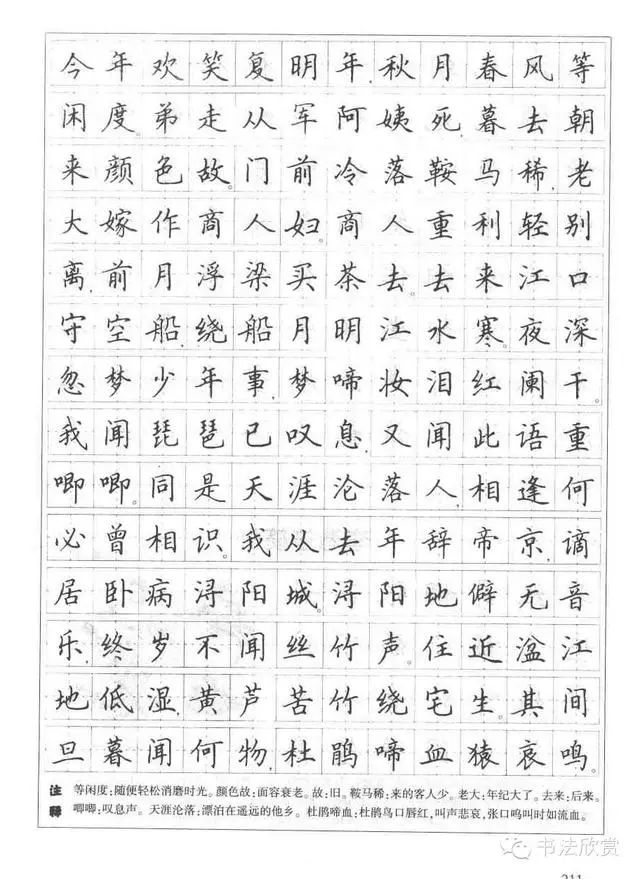 今年欢笑复明年,秋月春风等
闲度。弟走从军阿姨死,暮去朝
来颜色故。门前冷落鞍马稀,老
大嫁作商人妇。商人重利轻别
离,前月浮梁买茶去。去来江口
守空船,绕船月明江水寒。夜深
忽梦少年事,梦啼妆泪红阑干。
我闻琵琶已叹息,又闻此语重
唧唧。同是天涯沦落人,相逢何
必曾相识。我从去年辞帝京,谪
居卧病浔阳城。浔阳地僻无音
乐,终岁不闻丝竹声。住近湓江
地低湿,黄芦苦竹绕宅生。其间
旦暮闻何物,杜鹃啼血猿哀鸣。
注释 等闲度:随便轻松消磨时光。颜色故:面容衰老。故:旧。鞍马稀:来的客人少。老大:年纪大了。去来:后来。
唧唧:叹息声。天涯沦落:漂泊在遥远的他乡。杜鹃啼血:杜鹃鸟口唇红,叫声悲哀,张口鸣叫时如流血。
书法欣赏
211